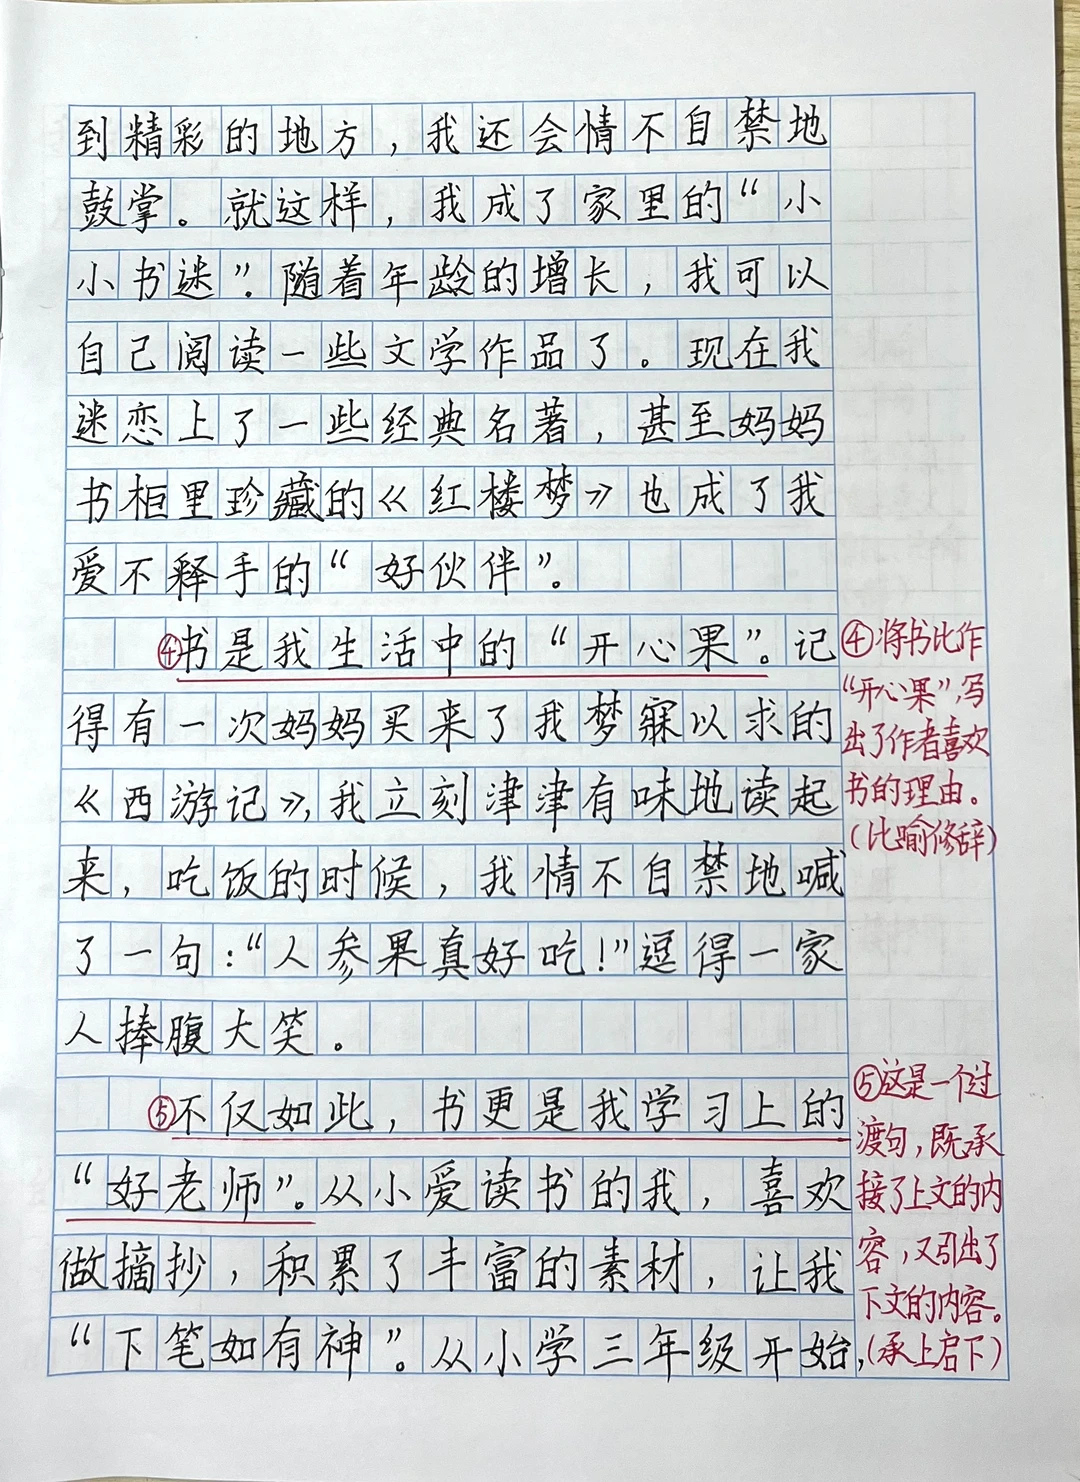 到精彩的地方，我还会情不自禁地
鼓掌。就这样，我成了家里的“小
小书迷”。随着年龄的增长，我可以
自己阅读一些文学作品了。现在我
迷恋上了一些经典名著，甚至妈妈
书柜里珍藏的《红楼梦》也成了我
爱不释手的“好伙伴”。
④书是我生活中的“开心果”。记
得有一次妈妈买来了我梦寐以求的
《西游记》，我立刻津津有味地读起
来，吃饭的时候，我情不自禁地喊
了一句：“人参果真好吃！”逗得一家
人捧腹大笑。
⑤不仅如此，书更是我学习上的
“好老师”。从小爱读书的我，喜欢
做摘抄，积累了丰富的素材，让我
“下笔如有神”。从小学三年级开始，
④将书比作
“开心果”，写
出了作者喜欢
书的理由。
（比喻修辞）
⑤这是一个过
渡句，既承
接了上文的内
容，又引出了
下文的内容。
（承上启下）